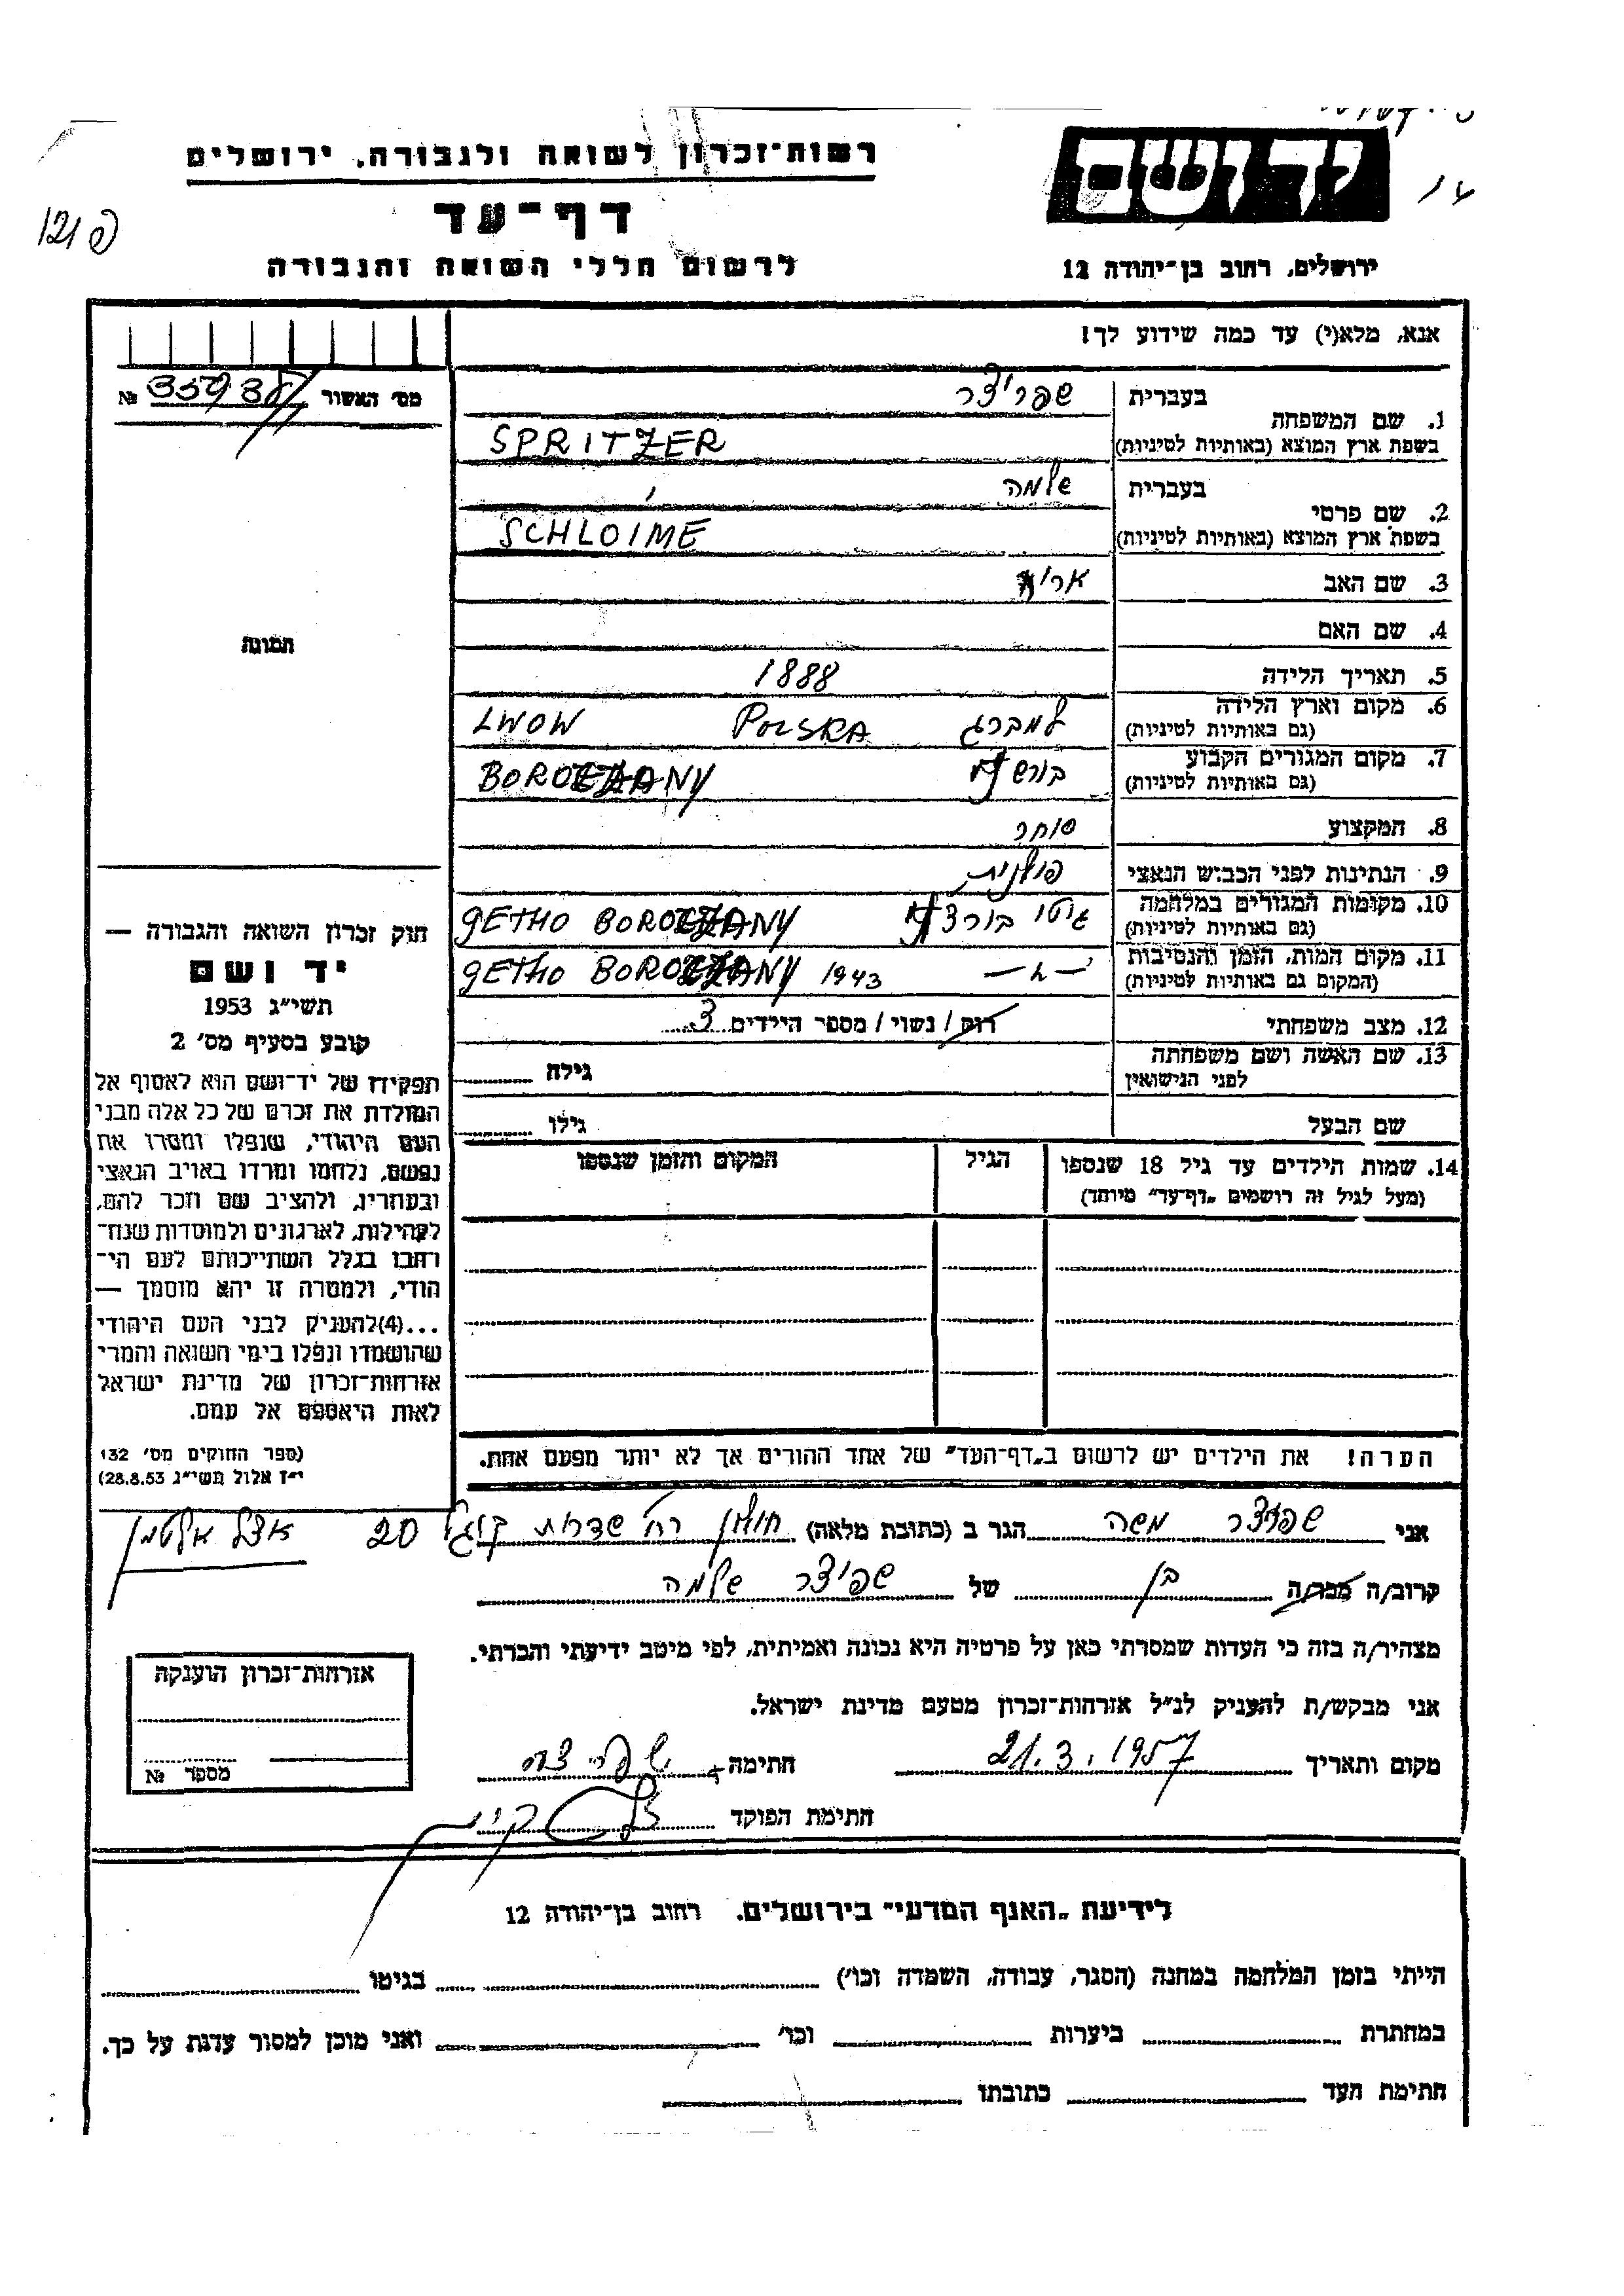 רשות־זכרון לשואה ולגבורה, ירושלים
יד ושם
דף־עד
לרשום חללי השואה והגבורה
ירושלים, רחוב בן־יהודה 12
אנא, מלא(י) עד כמה שידוע לך!
מס' האשור №
1. שם המשפחה
בעברית שפריצר
בשפת ארץ המוצא (באותיות לטיניות) SPRITZER
2. שם פרטי
בעברית שלמה
בשפת ארץ המוצא (באותיות לטיניות) SCHLOIME
3. שם האב אריה
4. שם האם
5. תאריך הלידה 1888
6. מקום וארץ הלידה למברג POLSKA LWOW
(גם באותיות לטיניות)
7. מקום המגורים הקבוע
(גם באותיות לטיניות)
8. המקצוע סוחר
9. הנתינות לפני הכבוש הנאצי פולנית
10. מקומות המגורים במלחמה גיטו GETHO
(גם באותיות לטיניות)
11. מקום המות, הזמן והנסיבות — " — 1943 GETHO
(המקום גם באותיות לטיניות)
12. מצב משפחתי רווק / נשוי / מספר הילדים 3
13. שם האשה ושם משפחתה גילה
לפני הנישואין
שם הבעל גילו
14. שמות הילדים עד גיל 18 שנספו הגיל המקום והזמן שנספו
(מעל לגיל זה רושמים „דף־עד" מיוחד)
הערה! את הילדים יש לרשום ב„דף־העד" של אחד ההורים אך לא יותר מפעם אחת.
תמונה
חוק זכרון השואה והגבורה —
יד ושם
תשי"ג 1953
קובע בסעיף מס' 2
תפקידו של יד־ושם הוא לאסוף אל
המולדת את זכרם של כל אלה מבני
העם היהודי, שנפלו ומסרו את
נפשם, נלחמו ומרדו באויב הנאצי
ובעוזריו, ולהציב שם וזכר להם,
לקהילות, לארגונים ולמוסדות שנח־
רבו בגלל השתייכותם לעם הי־
הודי, ולמטרה זו יהא מוסמך —
...(4)להעניק לבני העם היהודי
שהושמדו ונפלו בימי השואה והמרי
אזרחות־זכרון של מדינת ישראל
לאות היאספם אל עמם.
(ספר החוקים מס' 132
י"ז אלול תשי"ג 28.8.53)
אני שפריצר משה הגר ב (כתובת מלאה) חולון רח' שדרות קוגל 20 אצל אלטמן
קרוב/ה מכר/ה בן של שפיצר שלמה
מצהיר/ה בזה כי העדות שמסרתי כאן על פרטיה היא נכונה ואמיתית, לפי מיטב ידיעתי והכרתי.
אני מבקש/ת להעניק לנ"ל אזרחות־זכרון מטעם מדינת ישראל.
מקום ותאריך 21.3.1957 חתימה שפריצר
חתימת הפוקד
אזרחות־זכרון הוענקה
מספר №
לידיעת „האגף המדעי" בירושלים, רחוב בן־יהודה 12
הייתי בזמן המלחמה במחנה (הסגר, עבודה, השמדה וכו') בגיטו
במחתרת ביערות וכו' ואני מוכן למסור עדות על כך.
חתימת העד כתובתו